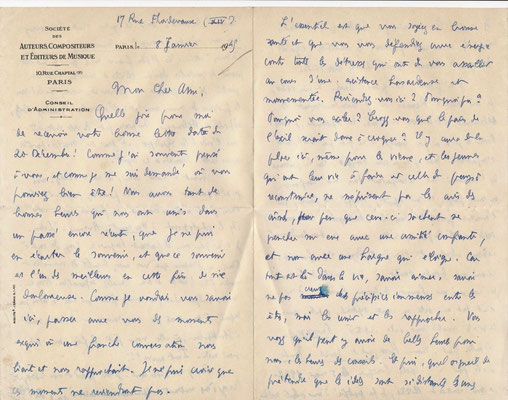 17 Rue (XIV)
SOCIÉTÉ
DES
AUTEURS, COMPOSITEURS
ET ÉDITEURS DE MUSIQUE
10, RUE CHAPTAL (9e)
PARIS
CONSEIL
D'ADMINISTRATION
PARIS, le 8 Janvier 1945
Mon cher Ami,
Quelle joie pour moi
de recevoir votre bonne lettre datée du
20 Décembre! Comme j'ai souvent pensé
à vous, et comme je me suis demandé où vous
pouviez bien être! Nous avons tant de
bonnes heures qui nous ont unis dans
un passé encore récent, que je ne puis
en écarter le souvenir, et que ce souvenir
est l'un des meilleurs en cette fin de vie
douloureuse. Comme je voudrais vous savoir
ici, passer avec vous des moments
exquis où une franche conversation nous
liait et nous rapprochait. Je ne puis croire que
ces moments ne reviendront pas.
L'essentiel est que vous soyez en bonne
santé et que vous vous défendiez avec
contre toutes les détresses qui ont dû vous assaillir
au cours d'une existence hasardeuse et
mouvementée. Reviendrez-vous ici? Pourquoi pas?
Pourquoi vous exiler? Croyez-vous que la peine de
l'exil serait douce à chaque? Il y aura de la
place ici, même pour les vieux, et les jeunes
qui ont leur vie à faire et celle du pays à
reconstruire, ne méprisent pas les avis des
aînés, pour peu que ceux-ci sachent se
pencher sur eux avec une amitié confiante,
et non avec une hargne qui éloigne. Car
tout est là dans la vie, savoir aimer, savoir
ne pas creuser des précipices immenses entre les
êtres, mais les unir et les rapprocher. Vous
voyez qu'il peut y avoir de belles heures pour
nous, les heures des conseils. Et puis, quel orgueil de
prétendre que les idées sont si distantes les unes